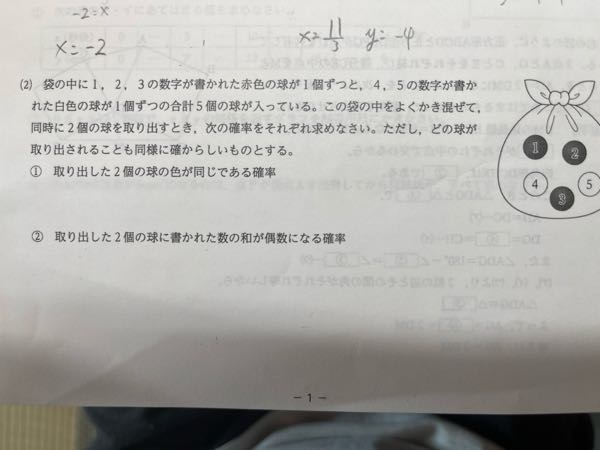 -2=x
x=-2
x=11/3 y=-4
(2) 袋の中に1，2，3の数字が書かれた赤色の球が1個ずつと，4，5の数字が書か
れた白色の球が1個ずつの合計5個の球が入っている。この袋の中をよくかき混ぜて，
同時に2個の球を取り出すとき，次の確率をそれぞれ求めなさい。ただし，どの球が
取り出されることも同様に確からしいものとする。
① 取り出した2個の球の色が同じである確率
② 取り出した2個の球に書かれた数の和が偶数になる確率
1
2
4
5
3
－1－